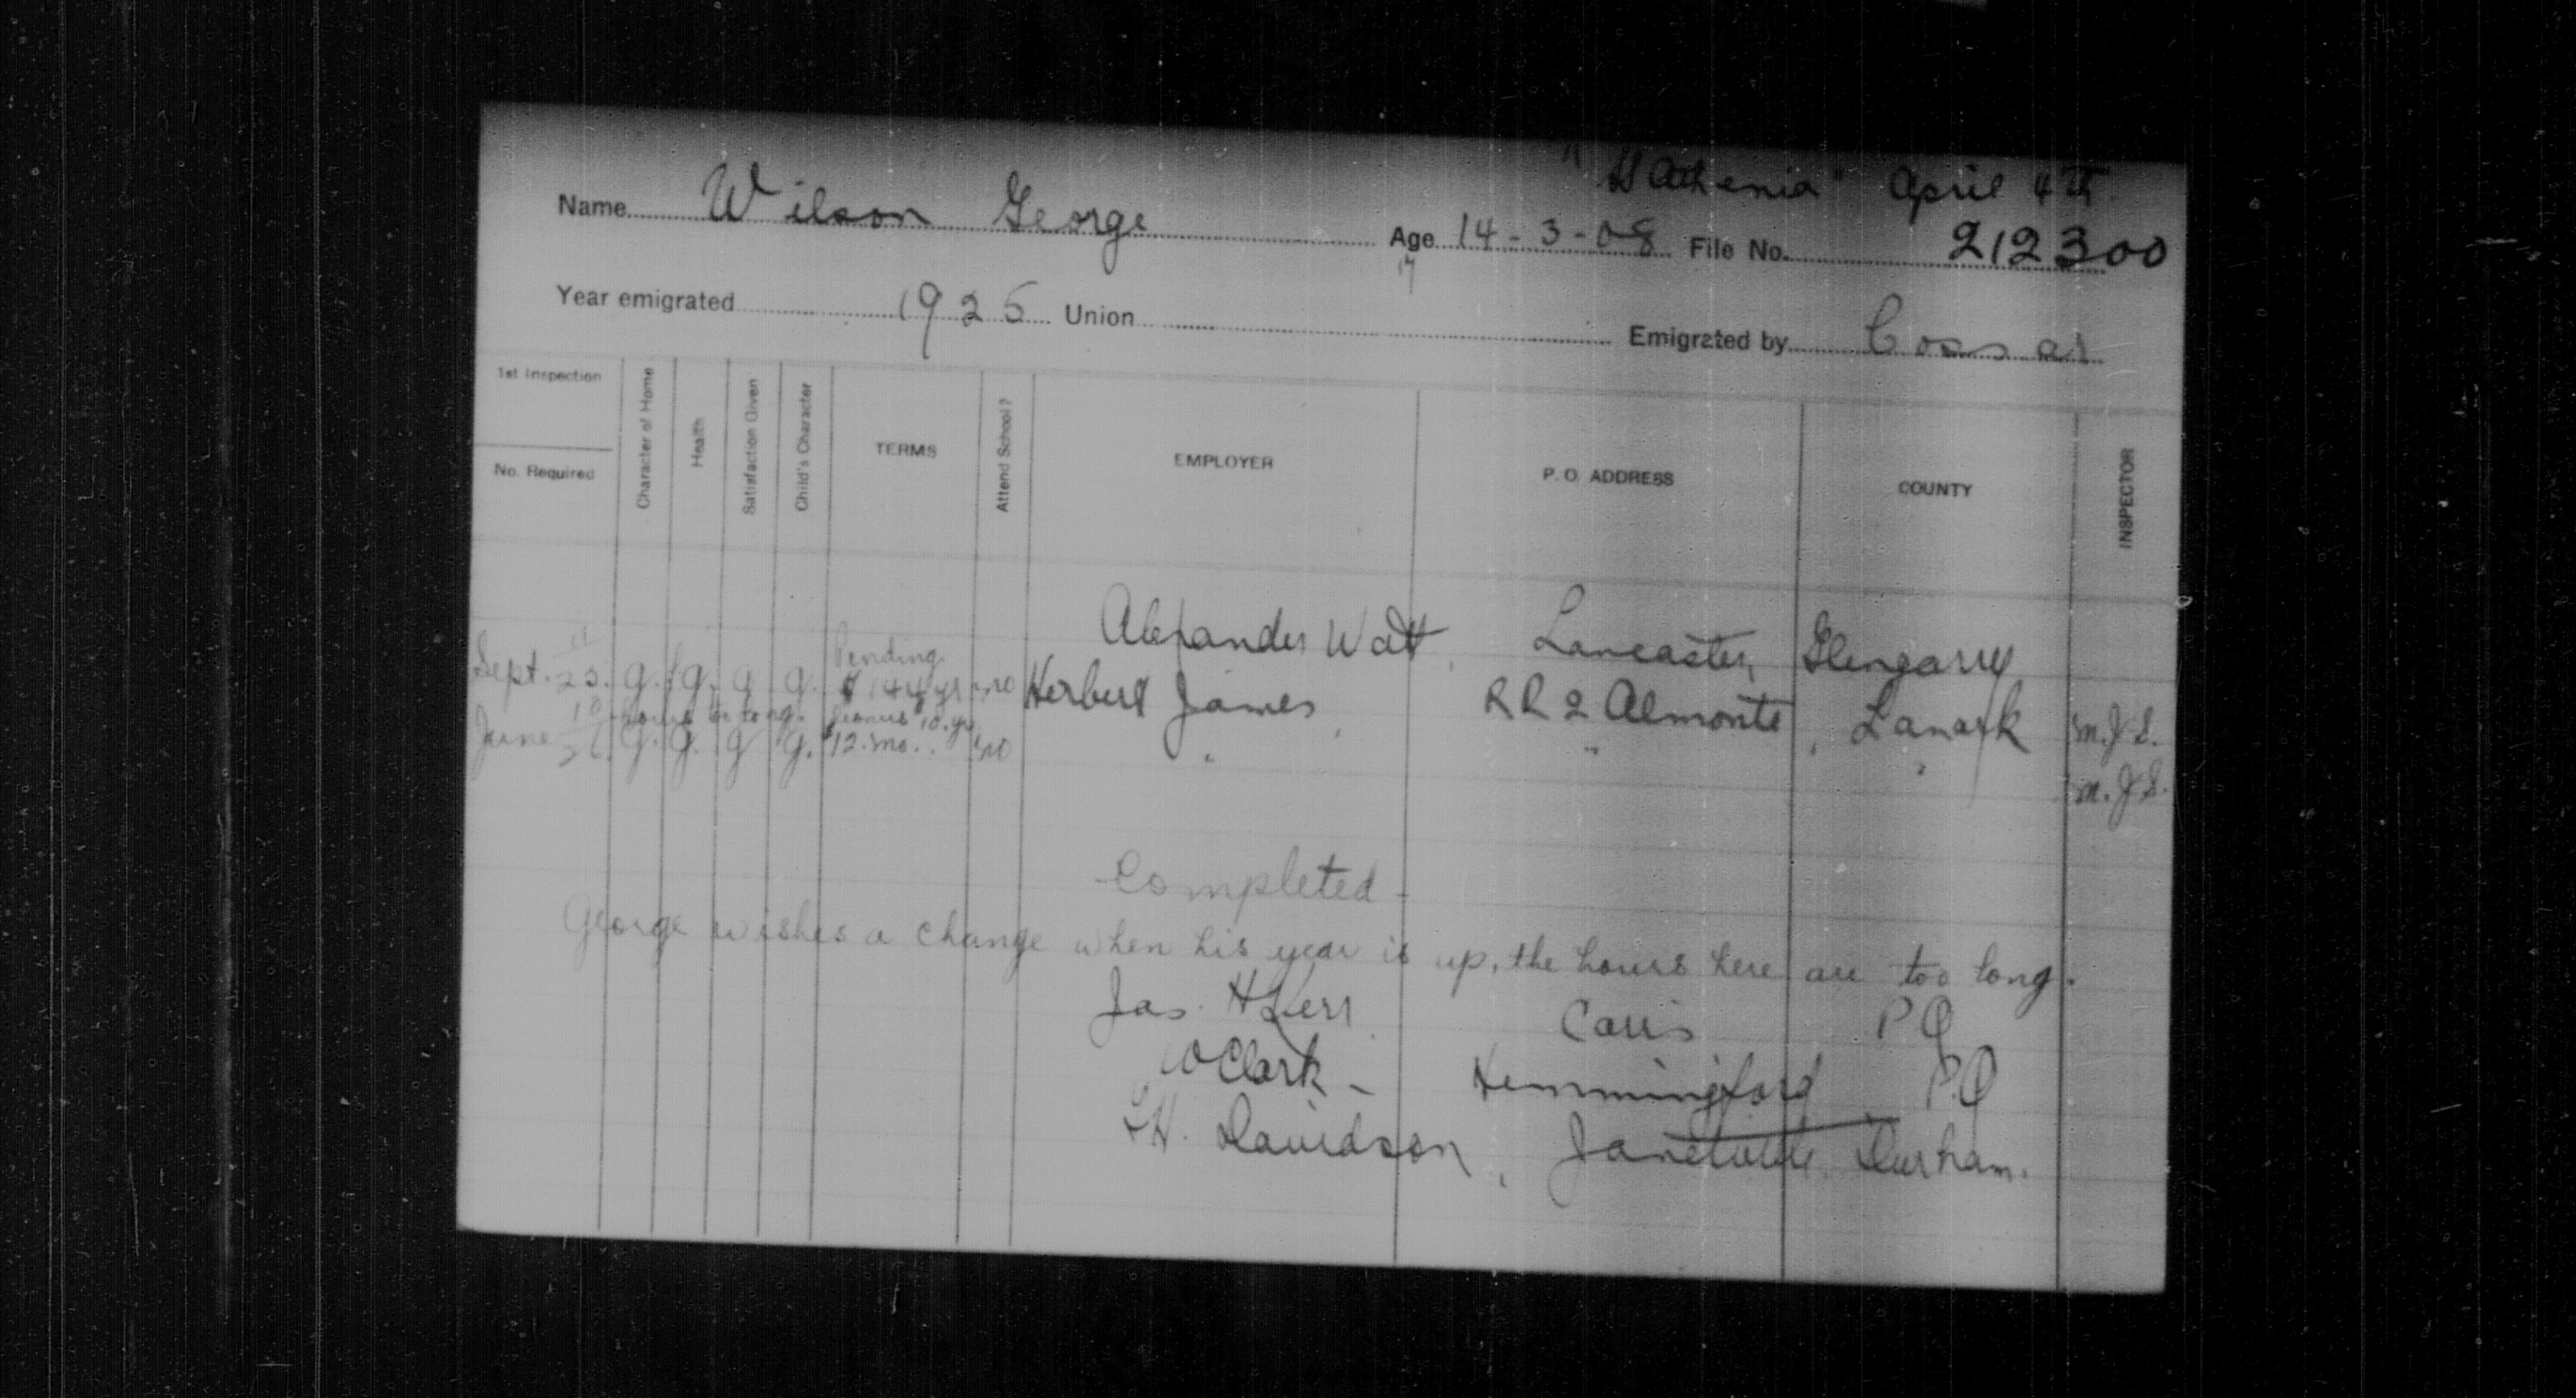 "Athenia" April 4th
Name Wilson George Age 14-3-08 File No. 212300
17
Year emigrated 1925 Union Emigrated by Cossar
1st Inspection
No. Required
Character of Home
Health
Satisfaction Given
Child's Character
TERMS
Attend School?
EMPLOYER
P. O. ADDRESS
COUNTY
INSPECTOR
Alexander Watt, Lancaster, Glengarry
Pending
Sept. 11/25. g. g. g g. $144 yr no Herbert James, RR2 Almonte, Lanark M.J.S.
hours too long. bonus 10. yr.
June 18/26. g. g. g g. $12. mo. no " " " M.J.S.
- Completed -
George wishes a change when his year is up, the hours here are too long.
Jas. H Kerr PQ
W Clark - Hemmingford P.Q
Davidson, Janetville, Durham.